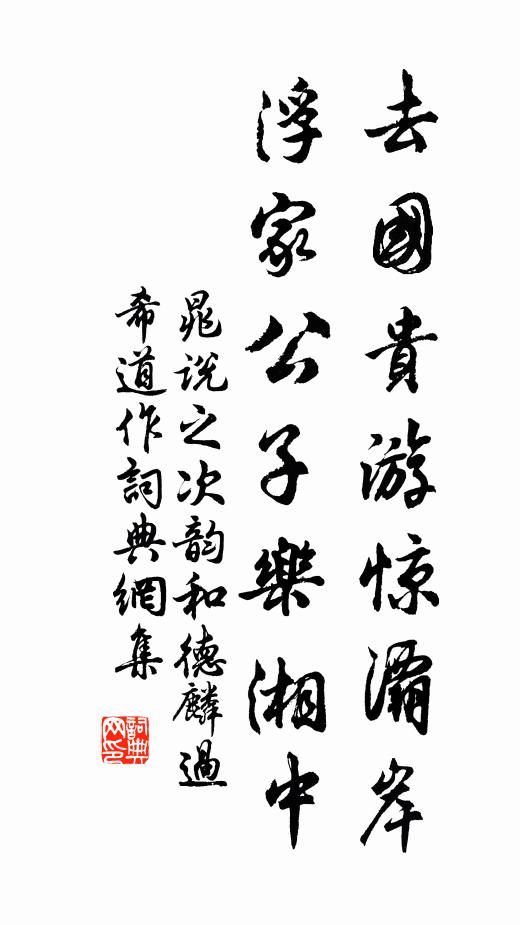 去國貴游惊灞岸
浮家公子樂湘中
晁说之次韵和德麟過
希道作詞典網集
詞典网印